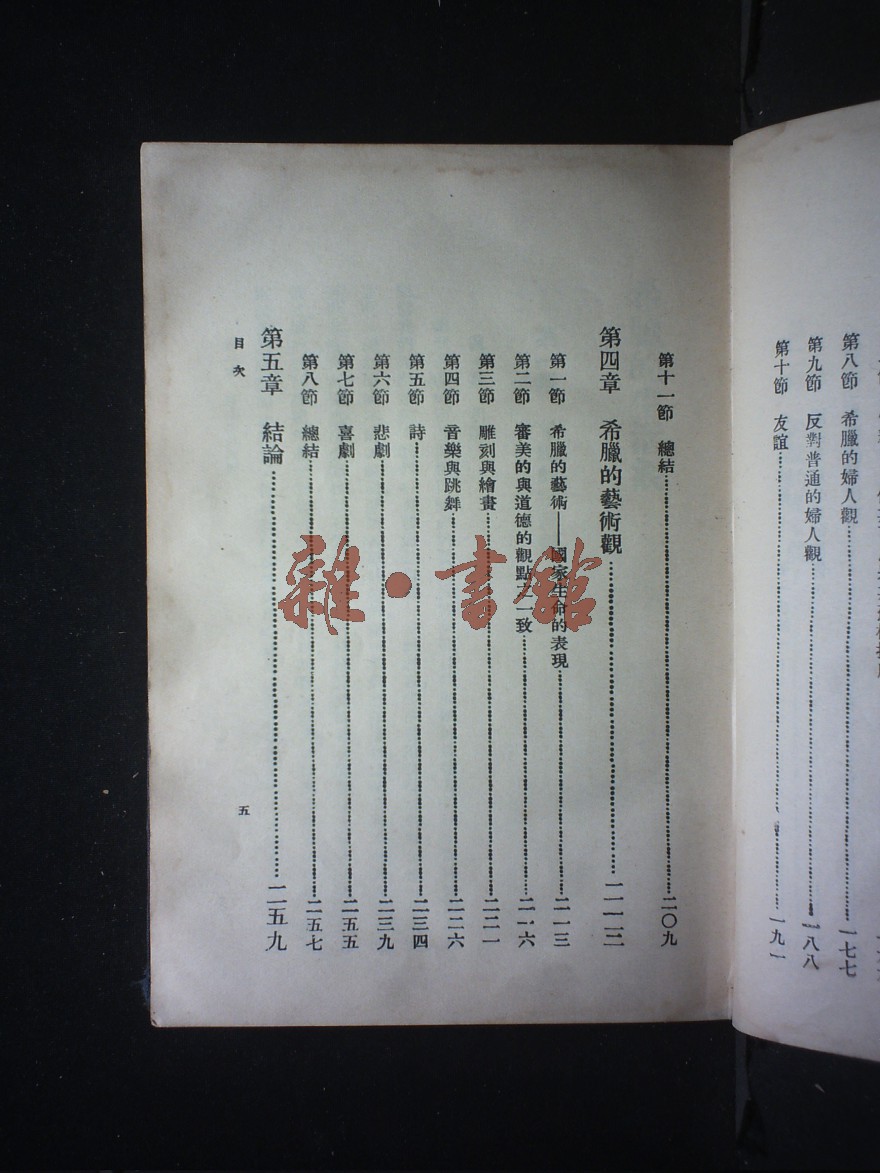 第八節 希臘的婦人觀……一七七
第九節 反對普通的婦人觀……一八八
第十節 友誼……一九一
第十一節 總結……二〇九
第四章 希臘的藝術觀……二一三
第一節 希臘的藝術——國家生命的表現……二一三
第二節 審美的與道德的觀點 一致……二一六
第三節 雕刻與繪畫……二二一
第四節 音樂與跳舞……二二六
第五節 詩……二三四
第六節 悲劇……二三九
第七節 喜劇……二五五
第八節 總結……二五七
第五章 結論……二五九
目次
五
雜·書館